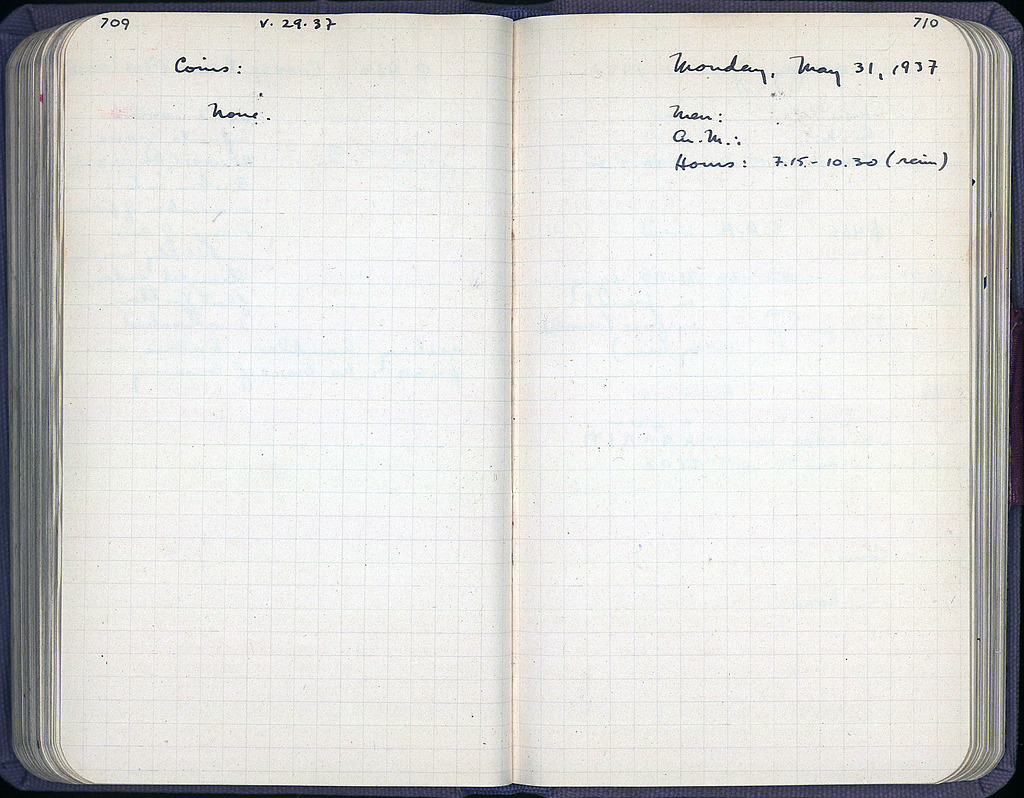 709
V. 29.37
Coins:
None.
710
Monday, May 31, 1937
Men:
An. M.:
Hours: 7.15-10.30 (rain)